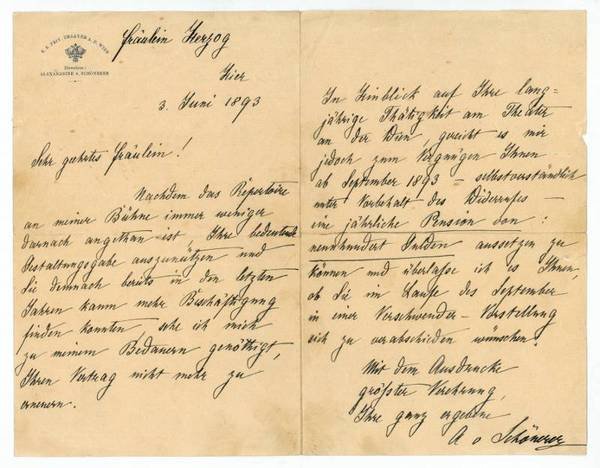 K. K. PRIV. THEATER A. D. WIEN
Direction:
ALEXANDRINE v. SCHÖNERER
Fräulein Herzog
Hier
3. Juni 1893
Sehr geehrtes Fräulein!
Nachdem das Repertoire
an meiner Bühne immer weniger
darnach angethan ist Ihre bedeutende
Gestaltungsgabe auszunützen und
Sie demnach bereits in den letzten
Jahren kaum mehr Beschäftigung
finden konnten, sehe ich mich
zu meinem Bedauern genöthigt,
Ihren Vertrag nicht mehr zu
erneuern.
In Hinblick auf Ihre lang-
jährige Thätigkeit am Theater
an der Wien, gereicht es mir
jedoch zum Vergnügen Ihnen
ab September 1893 – selbstverständlich
unter Vorbehalt des Widerrufes –
eine jährliche Pension von:
neunhundert Gulden aussetzen zu
können und überlasse ich es Ihnen,
ob Sie im Laufe des September
in einer Verschwender-Vorstellung
sich zu verabschieden wünschen.
Mit dem Ausdrucke
größter Verehrung,
Ihre ganz ergebene
A v Schönerer